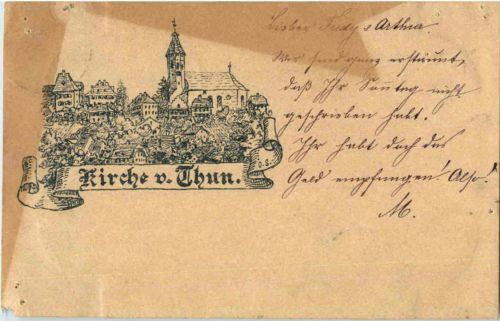 Lieber Fredy & Arthur.
Wir sind ganz erstaunt,
daß Ihr Sonntag nicht
geschrieben habt.
Ihr habt doch das
Geld empfangen! Also!
M.
Kirche v. Thun.